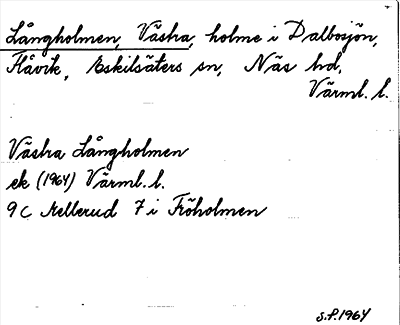 Långholmen, Västra, holme i Dalbosjön,
Flåvik, Eskilsäters sn, Näs hd,
Värml. l.
Västra Långholmen
ek (1964) Värml. l.
9C Mellerud 7 i Fröholmen
S.F. 1964